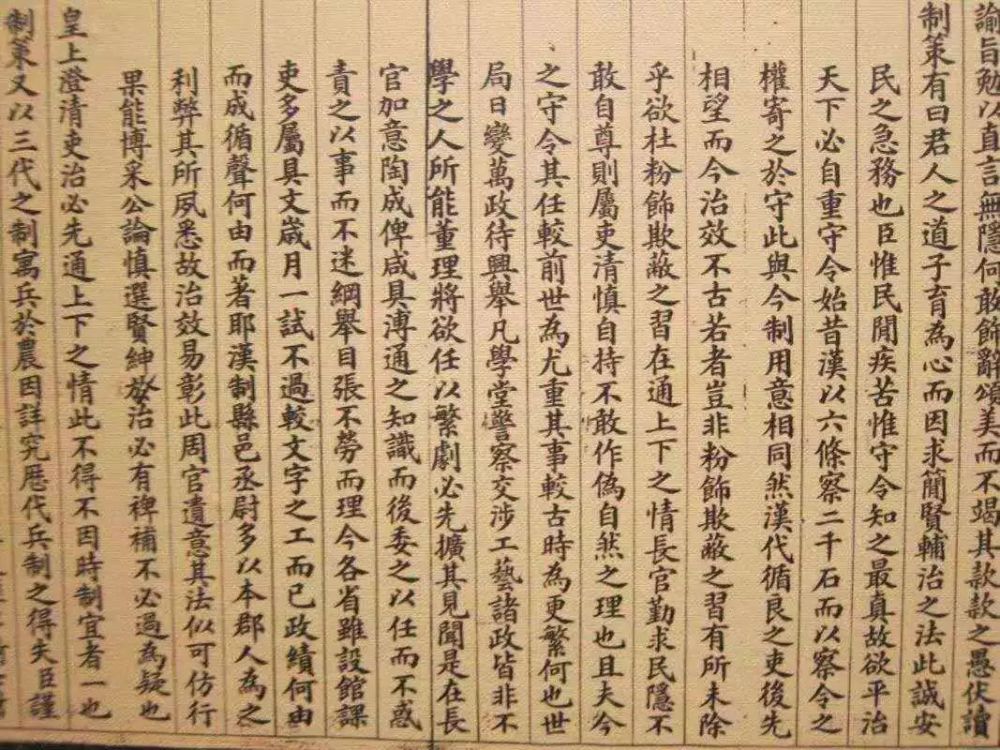 諭旨勉以直言無隱何敢飾辭頌美而不竭其款款之愚伏讀
制策有曰君人之道子育為心而因求簡賢輔治之法此誠安
民之急務也臣惟民閒疾苦惟守令知之最真故欲平治
天下必自重守令始昔漢以六條察二千石而以察令之
權寄之於守此與今制用意相同然漢代循良之吏後先
相望而今治效不古若者豈非粉飾欺蔽之習有所未除
乎欲杜粉飾欺蔽之習在通上下之情長官勤求民隱不
敢自尊則屬吏清慎自持不敢作偽自然之理也且夫今
之守令其任較前世為尤重其事較古時為更繁何也世
局日變萬政待興舉凡學堂警察交涉工藝諸政皆非不
學之人所能董理將欲任以繁劇必先擴其見聞是在長
官加意陶成俾咸具溥通之知識而後委之以任而不惑
責之以事而不迷綱舉目張不勞而理今各省雖設館課
吏多屬具文歲月一試不過較文字之工而已政績何由
而成循聲何由而著耶漢制縣邑丞尉多以本郡人為之
利弊其所夙悉故治效易彰此周官遺意其法似可仿行
果能博采公論慎選賢紳於治必有裨補不必過為疑也
皇上澄清吏治必先通上下之情此不得不因時制宜者一也
制策又以三代之制寓兵於農因詳究歷代兵制之得失臣謹